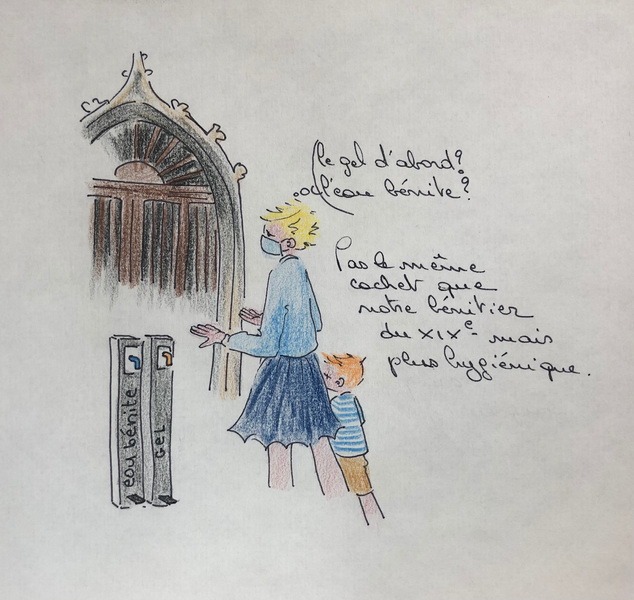 le gel d'abord?
ou l'eau bénite?
Pas le même
cachet que
notre bénitier
du XIXe mais
plus hygiénique.
eau bénite
GEL